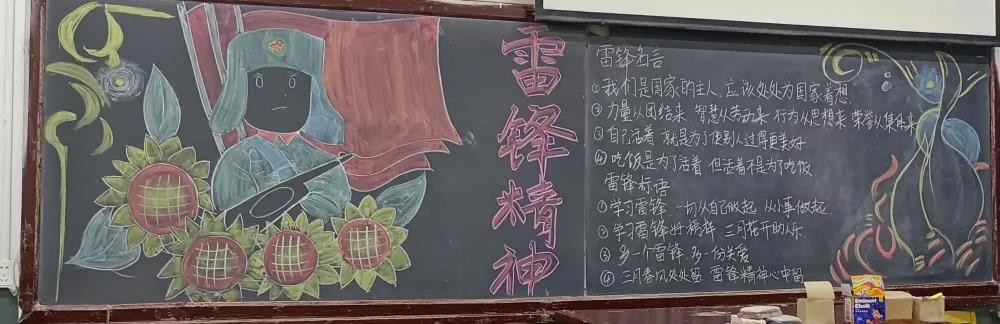 雷锋精神
雷锋名言
①我们是国家的主人，应该处处为国家着想.
②力量从团结来 智慧从劳动来 行为从思想来 荣誉从集体来
③自己活着 就是为了使别人过得更美好
④吃饭是为了活着 但活着不是为了吃饭
雷锋标语
①学习雷锋 一切从自己做起 从小事做起.
②学习雷锋好榜样 三月花开助人乐.
③多一个雷锋 多一份关爱
④三月春风处处 雷锋精神心中留
Eminent
Chalk